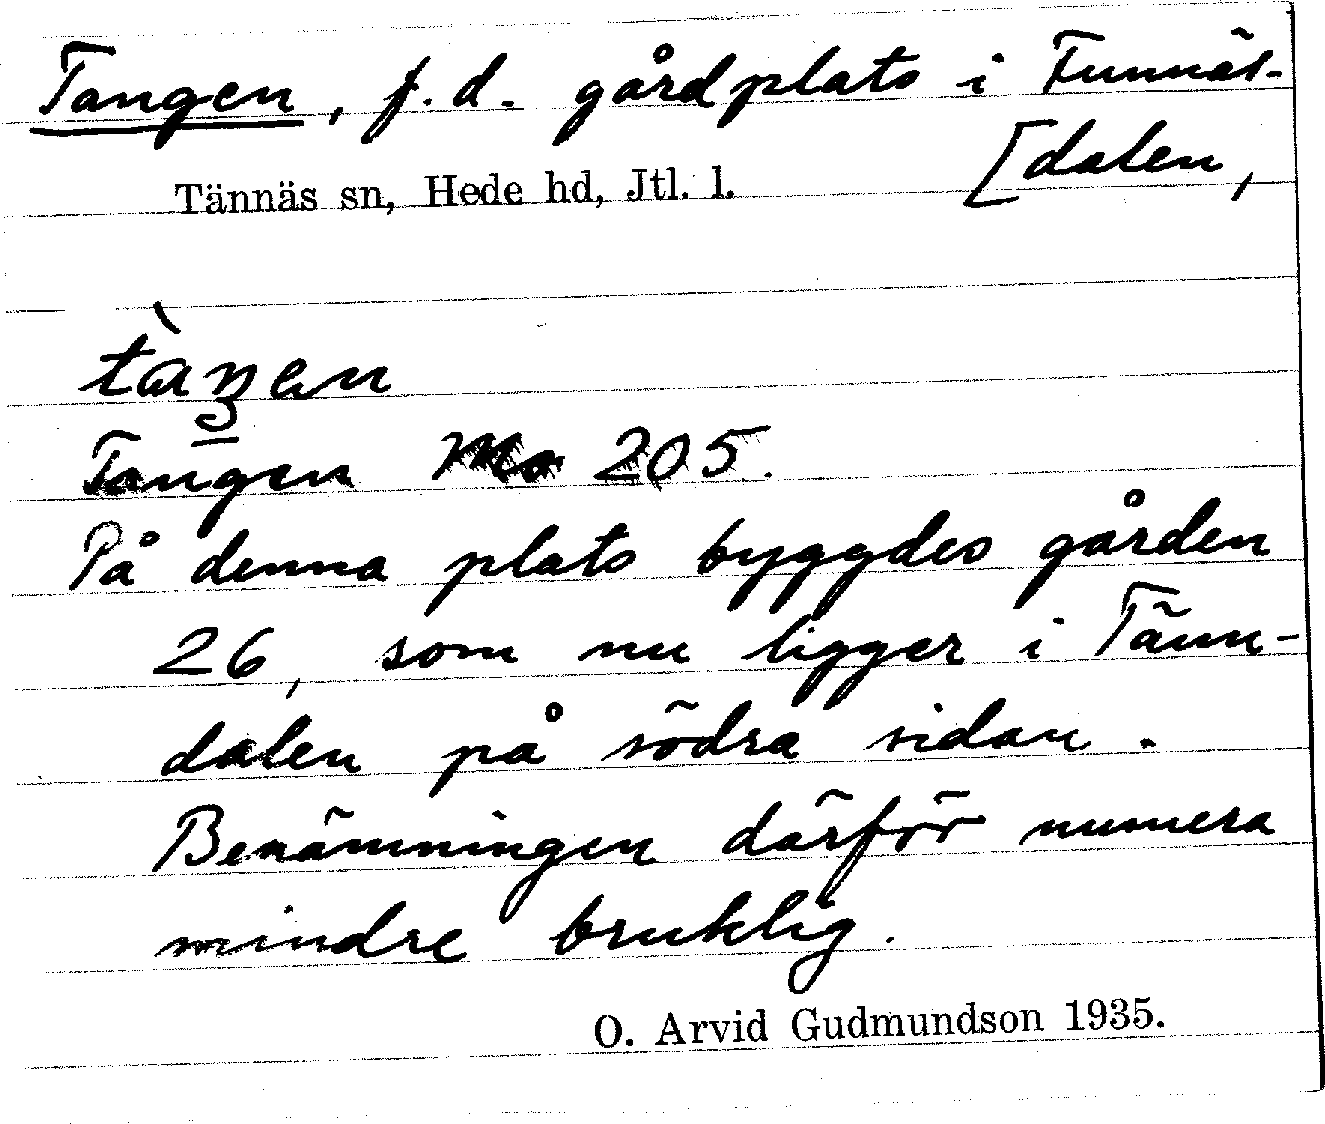 Tangen, f.d. gårdplats i Funnäs-
[dalen,
Tännäs sn, Hede hd, Jtl. l.
tàŋen
Tangen Mo 205.
På denna plats byggdes gården
26, som nu ligger i Tänn-
dalen på södra sidan.
Benämningen därför numera
mindre bruklig.
O. Arvid Gudmundson 1935.